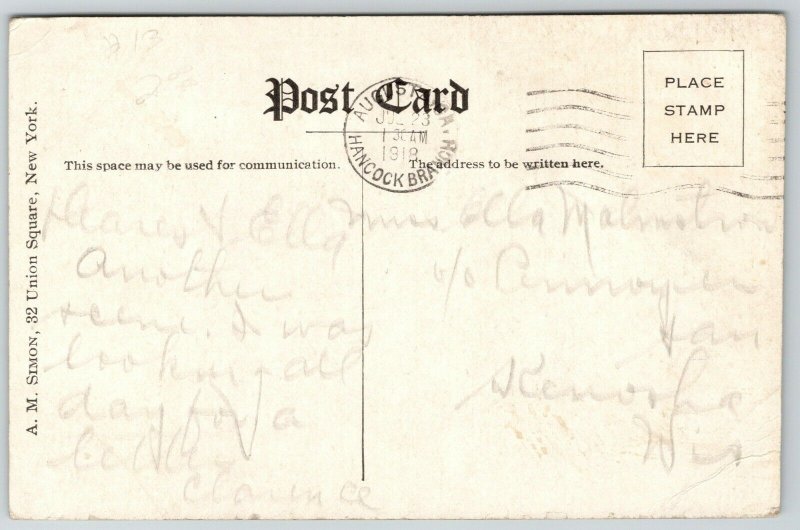 Post Card
AUGUSTA, GA.
JUL 23
1 30 AM
1918
HANCOCK BRANCH
PLACE
STAMP
HERE
This space may be used for communication.
The address to be written here.
A. M. SIMON, 32 Union Square, New York.
Dearest Ella
Another
scene. I was
looking all
day for a
letter
Clarence
Miss Ella Malmstrom
c/o Pennoyer
San
Kenosha
Wis